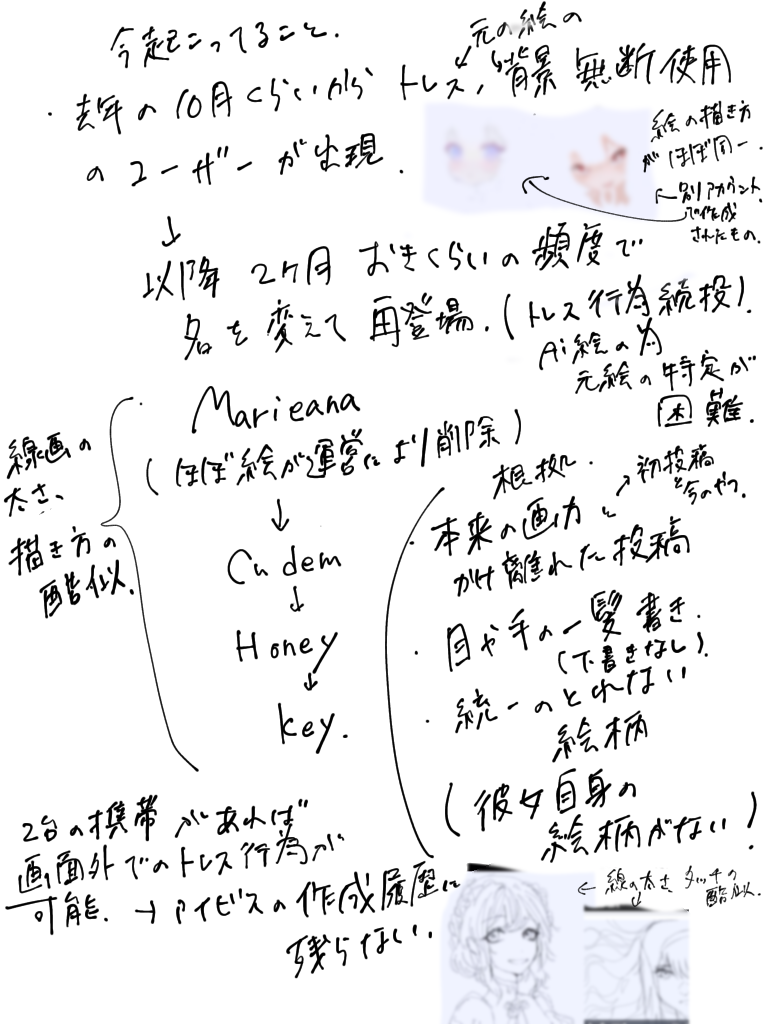 今起こってること.
・去年の10月くらいから トレス、背景 無断使用
元の絵の
のユーザーが出現.
絵の描き方
がほぼ同一.
←別アカウント
で作成
されたもの.
↓
以降 2ヶ月 おきくらいの頻度で
名を変えて 再登場.(トレス行為続投).
Ai絵の為
元絵の特定が
困難.
線画の
太さ、
描き方の
酷似.
・Marieana
(ほぼ絵が運営により削除)
↓
Cudem
↓
Honey
↓
key.
根拠.
・本来の画力と
かけ離れた投稿
↗初投稿
と今のやつ.
・目や手の一髪書き.
(下書きなし).
・統一のとれない
絵柄
(彼女自身の
絵柄がない!)
2台の携帯があれば
画面外でのトレス行為が
可能.→アイビスの作成履歴に
残らない.
←線の太さ タッチの
↓
酷似.